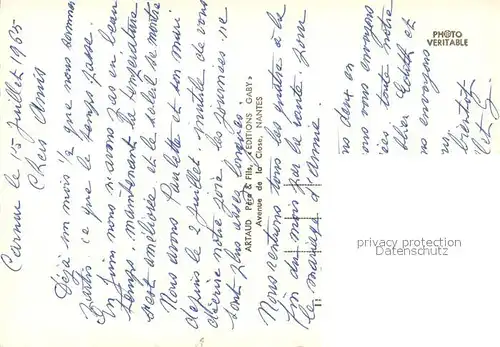 Carnac le 15 Juillet 1965
Chers Amis
Déjà un mois 1/2 que nous sommes
partis. ce que le temps passe.
En Juin nous n'avons pas eu beau
temps. maintenant la température
s'est améliorée et le soleil se montre
Nous avons Paulette et son mari
depuis le 2 Juillet. inutile de vous
décrire notre joie les journées ne
sont plus assez longues.
Nous rentrons tous les quatre à la
fin du mois par la route. pour
le mariage d'Annie.
ARTAUD Père & Fils, « EDITIONS GABY »
Avenue de la Close, NANTES
11
PHOTO
VERITABLE
deux en
nous vous envoyons
toute notre
et
envoyons
bientôt
et
privacy protection
Datenschutz